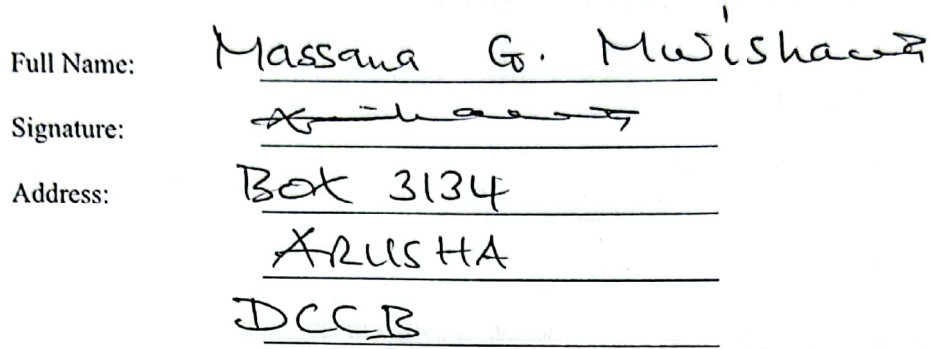 Full Name: Massana G. Mwishawa
Signature:
Address: Box 3134
ARUSHA
DCCB